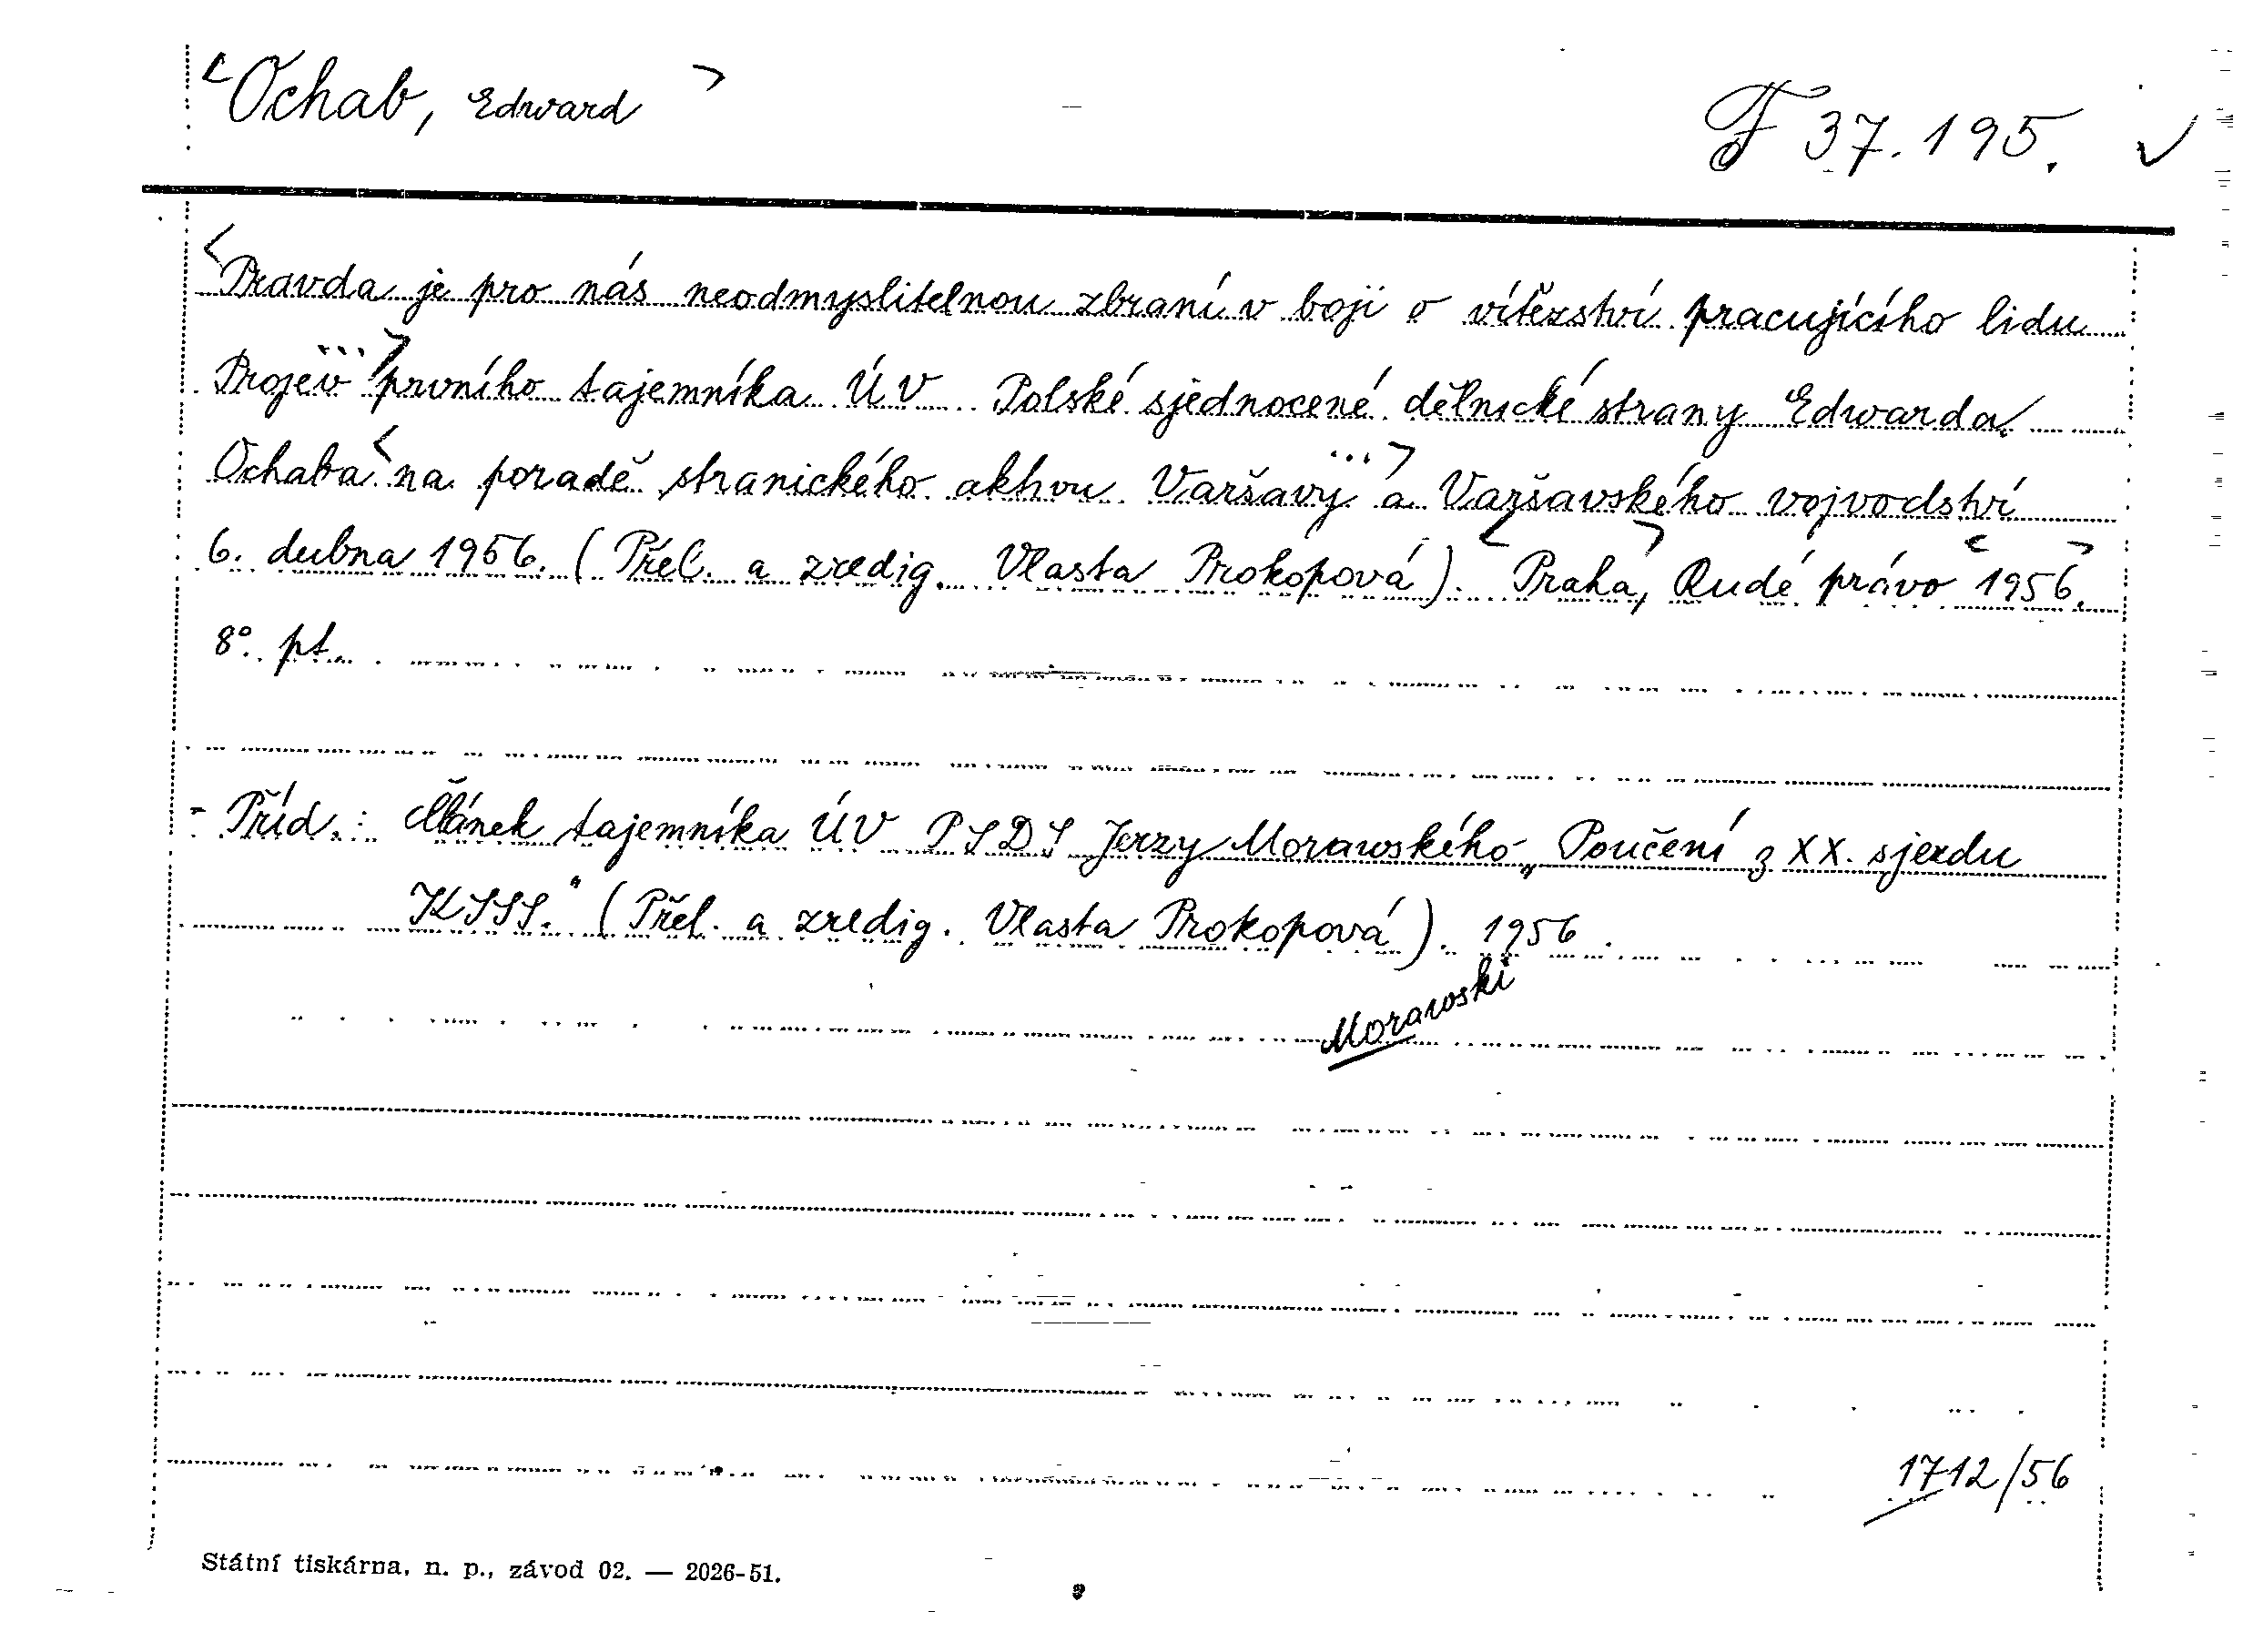 <Ochab, Edward>
F 37.195. ✓
<Pravda je pro nás neodmyslitelnou zbraní v boji o vítězství pracujícího lidu
...> Projev prvního tajemníka ÚV Polské sjednocené dělnické strany Edwarda
Ochaba <na poradě stranického aktivu Varšavy ...> a Varšavského vojvodství
6. dubna 1956. (Přel. a zredig. Vlasta Prokopová). <Praha>, Rudé právo <1956>.
8°. pt.
- Příd.: Článek tajemníka ÚV PSDS Jerzy Morawského „Poučení z XX. sjezdu
KSSS.“ (Přel. a zredig. Vlasta Prokopová). 1956.
Morawski
1712/56
Státní tiskárna, n. p., závod 02. — 2026-51.